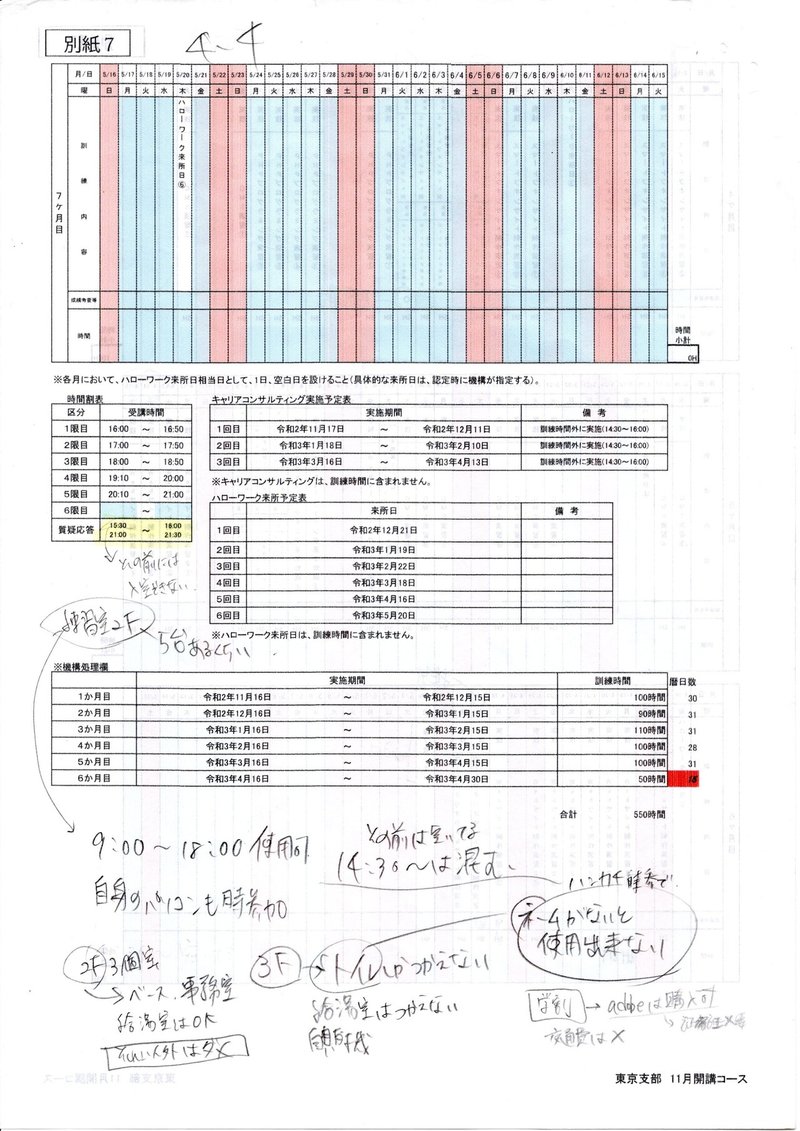 別紙7
4-4
月/日 5/16 5/17 5/18 5/19 5/20 5/21 5/22 5/23 5/24 5/25 5/26 5/27 5/28 5/29 5/30 5/31 6/1 6/2 6/3 6/4 6/5 6/6 6/7 6/8 6/9 6/10 6/11 6/12 6/13 6/14 6/15
曜 日 月 火 水 木 金 土 日 月 火 水 木 金 土 日 月 火 水 木 金 土 日 月 火 水 木 金 土 日 月 火
7ヶ月目
訓練内容
ハローワーク来所日⑥
成績考査等
時間
時間
小計
0H
※各月において、ハローワーク来所日相当日として、1日、空白日を設けること(具体的な来所日は、認定時に機構が指定する)。
時間割表
区分 受講時間
1限目 16:00 ～ 16:50
2限目 17:00 ～ 17:50
3限目 18:00 ～ 18:50
4限目 19:10 ～ 20:00
5限目 20:10 ～ 21:00
6限目 ～
質疑応答 15:30 21:00 ～ 16:00 21:30
キャリアコンサルティング実施予定表
実施期間 備考
1回目 令和2年11月17日 ～ 令和2年12月11日 訓練時間外に実施(14:30～16:00)
2回目 令和3年1月18日 ～ 令和3年2月10日 訓練時間外に実施(14:30～16:00)
3回目 令和3年3月16日 ～ 令和3年4月13日 訓練時間外に実施(14:30～16:00)
※キャリアコンサルティングは、訓練時間に含まれません。
ハローワーク来所予定表
来所日 備考
1回目 令和2年12月21日
2回目 令和3年1月19日
3回目 令和3年2月22日
4回目 令和3年3月18日
5回目 令和3年4月16日
6回目 令和3年5月20日
※ハローワーク来所日は、訓練時間に含まれません。
その前には
入室できない
練習室2F
5台あるくらい
※機構処理欄
実施期間 訓練時間 暦日数
1か月目 令和2年11月16日 ～ 令和2年12月15日 100時間 30
2か月目 令和2年12月16日 ～ 令和3年1月15日 90時間 31
3か月目 令和3年1月16日 ～ 令和3年2月15日 110時間 31
4か月目 令和3年2月16日 ～ 令和3年3月15日 100時間 28
5か月目 令和3年3月16日 ～ 令和3年4月15日 100時間 31
6か月目 令和3年4月16日 ～ 令和3年4月30日 50時間 15
合計 550時間
9:00～18:00 使用可
その前は空いてる
14:30～は混む
自身のパソコンも
ハンカチ持参で
ネームがないと
使用出来ない
2F 3個室
ベース、事務室
給湯室はOK
それ以外はダメ
3F → トイレしかつかえない
給湯室はつかえない
自販機
学割 → adobeは購入可
交通費は×
東京支部 11月開講コース